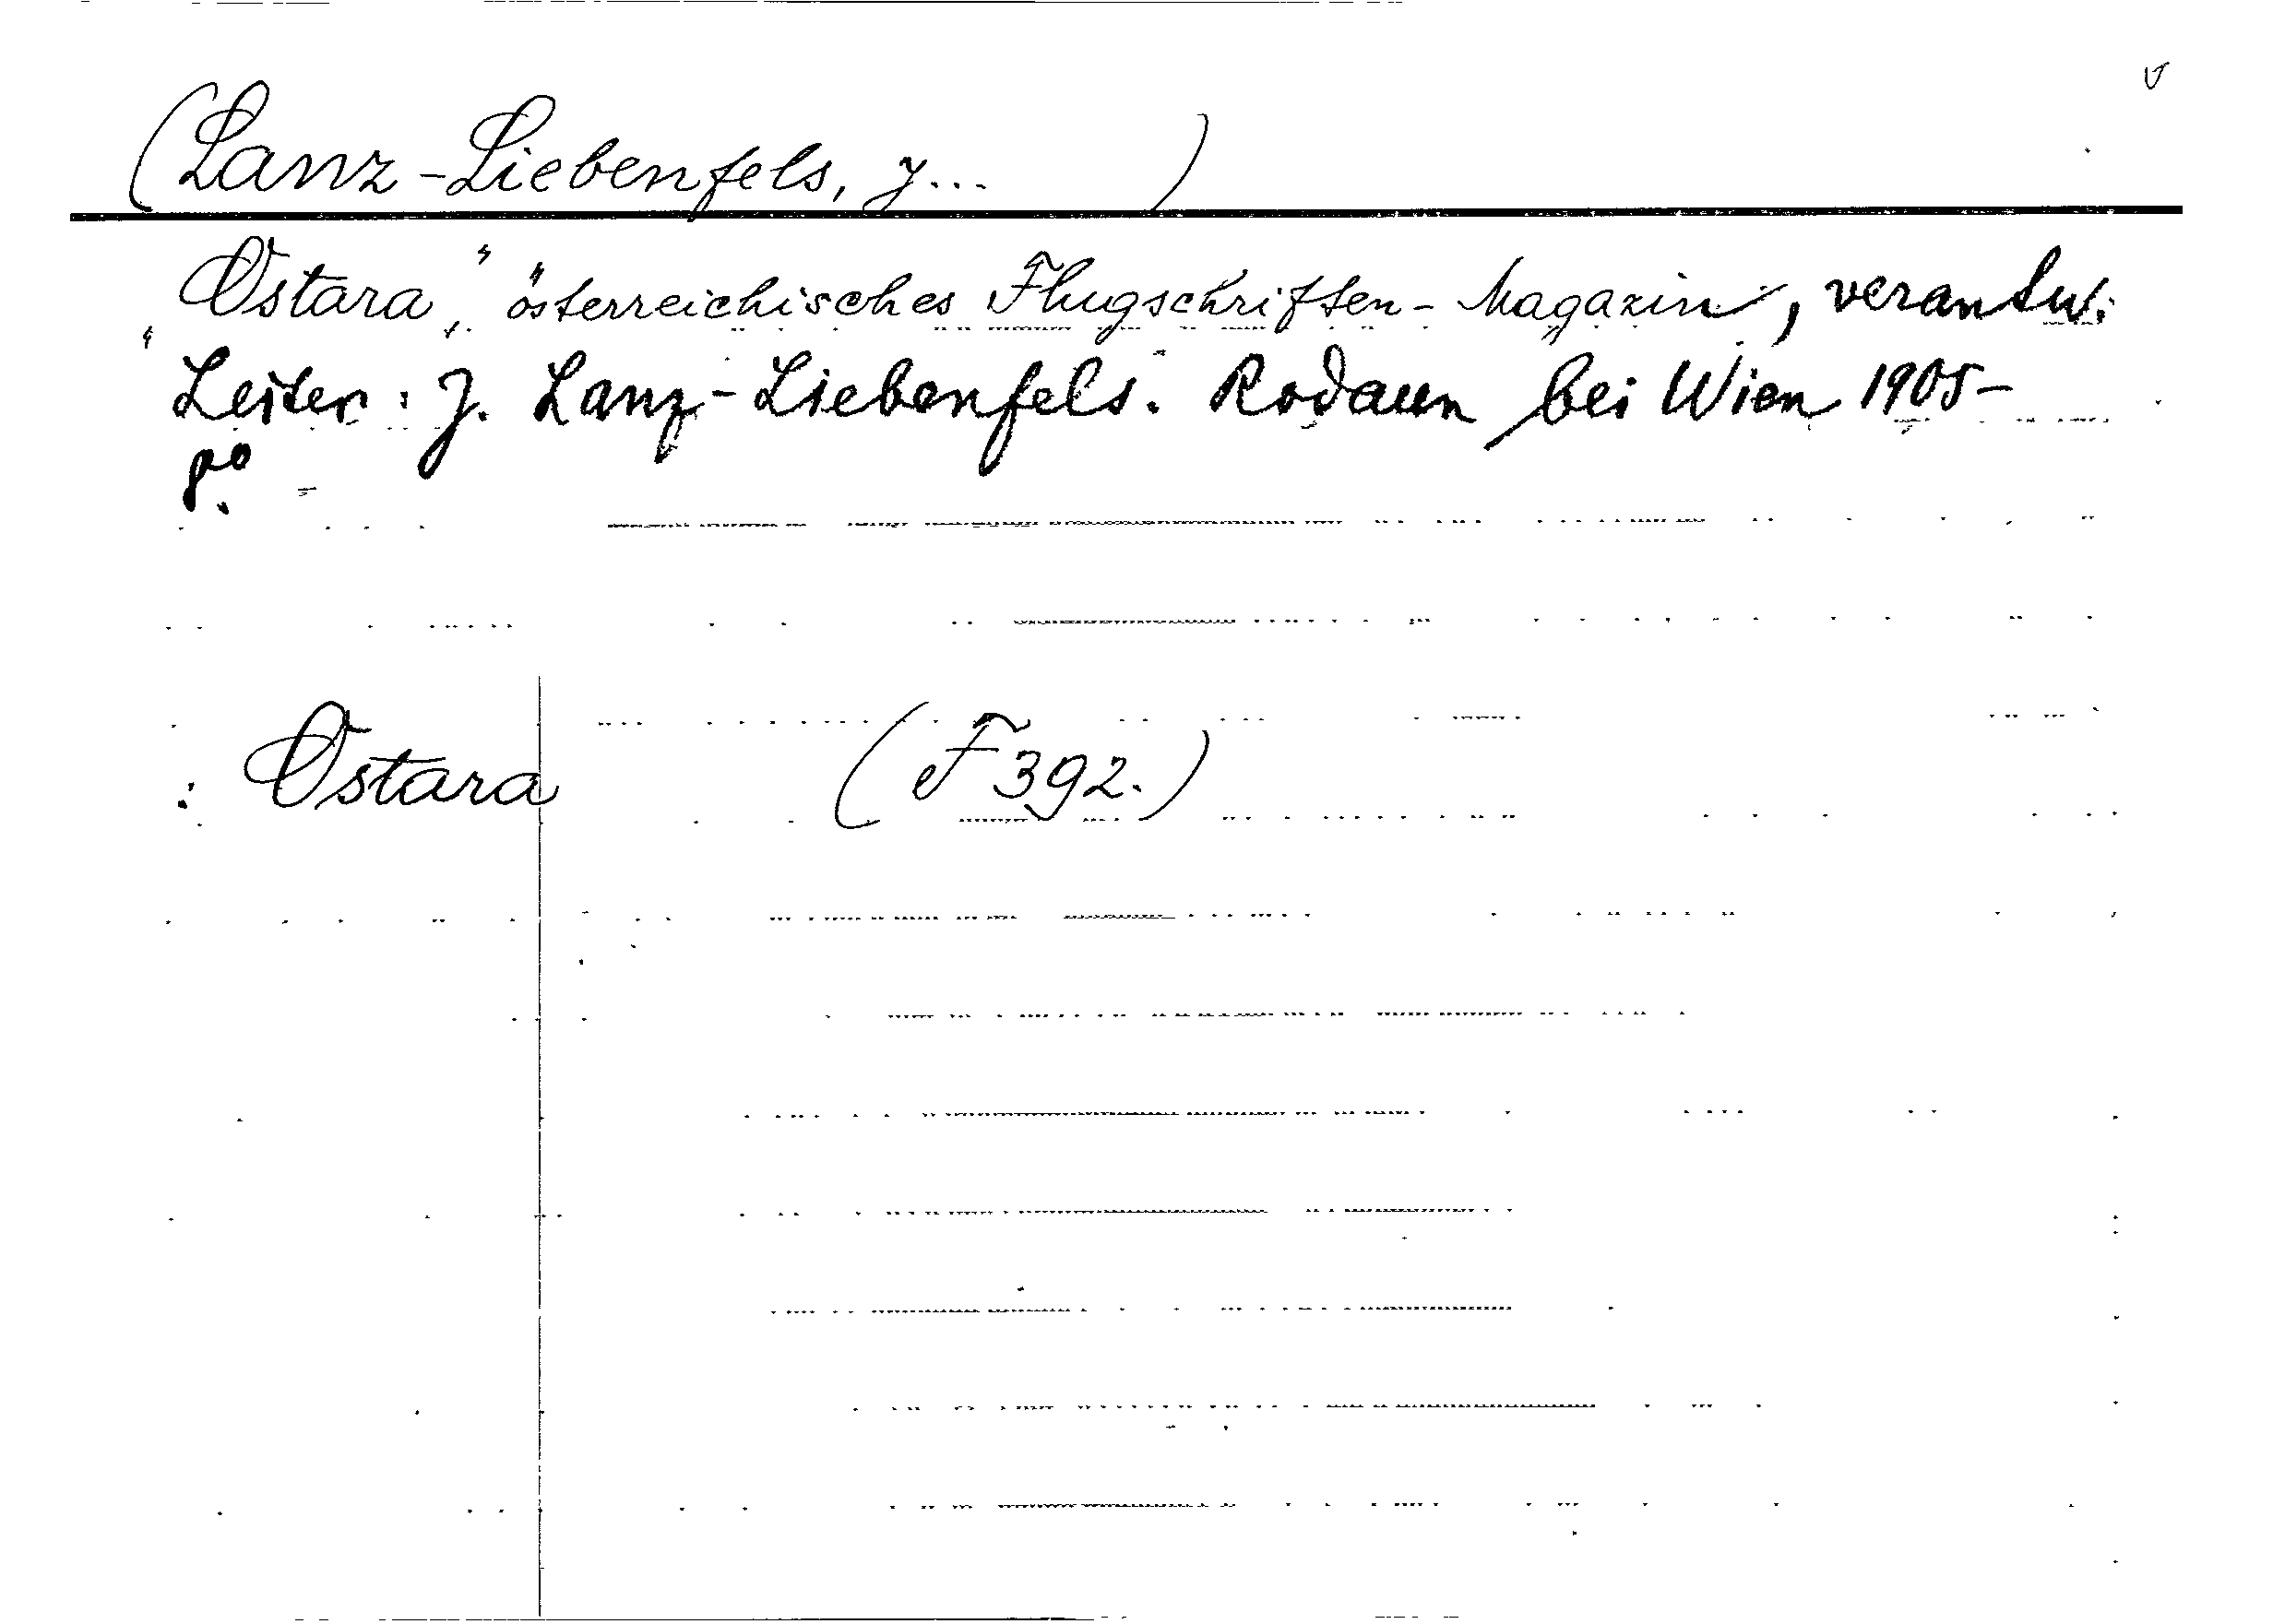 (Lanz-Liebenfels, J... )
"Ostara," österreichisches Flugschriften-Magazin, verantw.
Leiter: J. Lanz-Liebenfels. Rodaun bei Wien 1905-
8°.
: Ostara (F 392.)